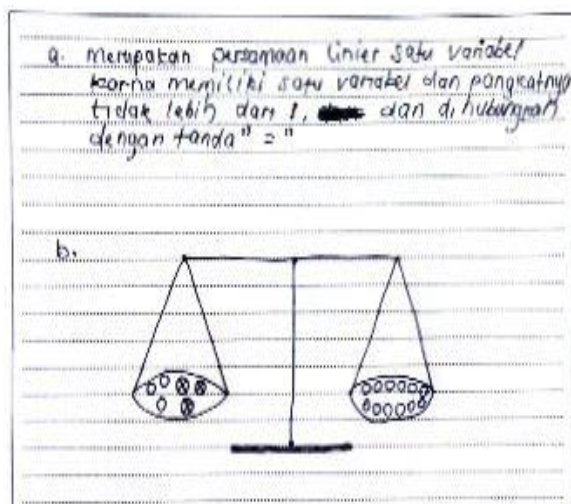 a. merupakan persamaan linier satu variabel
karna memiliki satu variabel dan pangkatnya
tidak lebih dari 1, dan di hubungkan
dengan tanda " = "
b.